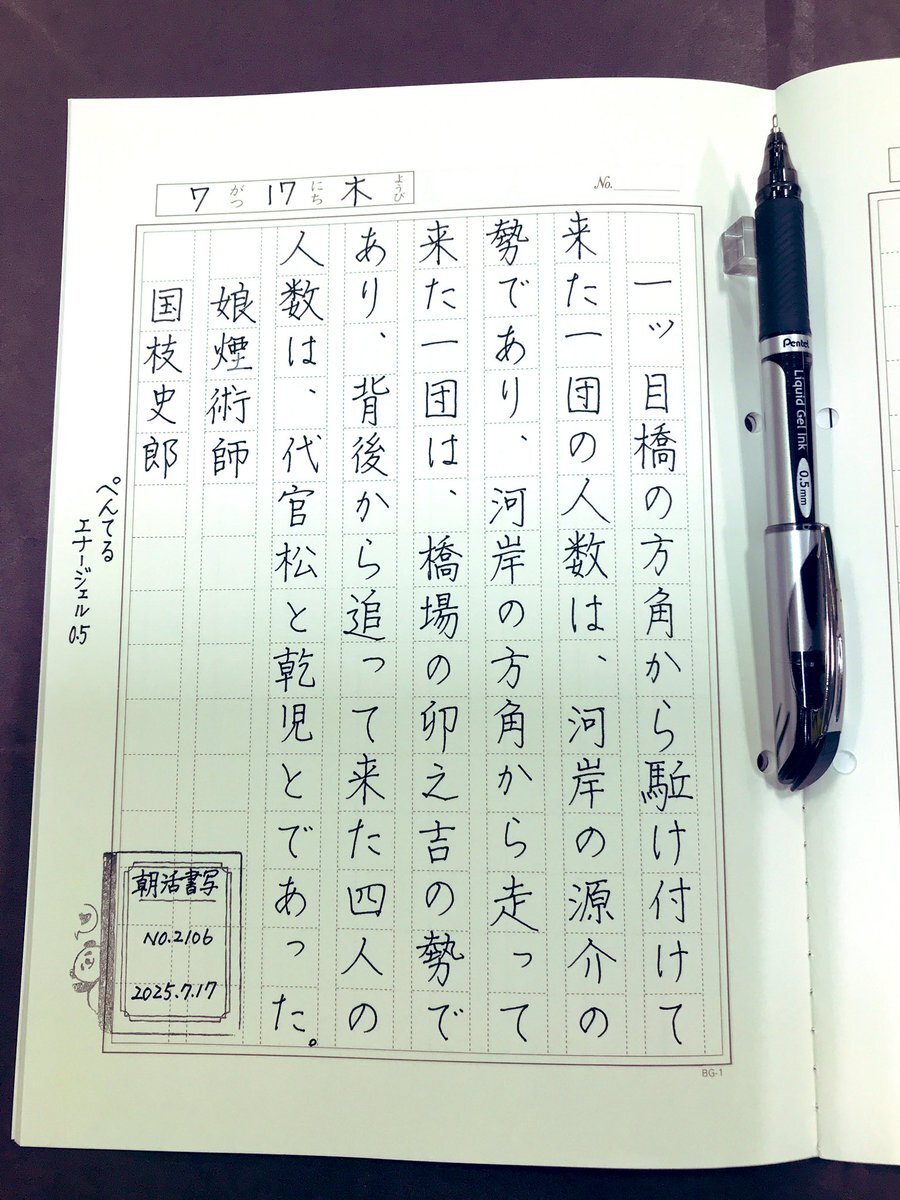 7 がつ 17 にち 木 ようび
No.
一ッ目橋の方角から駈け付けて
来た一団の人数は、河岸の源介の
勢であり、河岸の方角から走って
来た一団は、橋場の卯之吉の勢で
あり、背後から追って来た四人の
人数は、代官松と乾児とであった。
娘煙術師
国枝史郎
ぺんてる
エナージェル 0.5
朝活書写
NO.2106
2025.7.17
BG-1
Pentel
Liquid Gel Ink
0.5mm